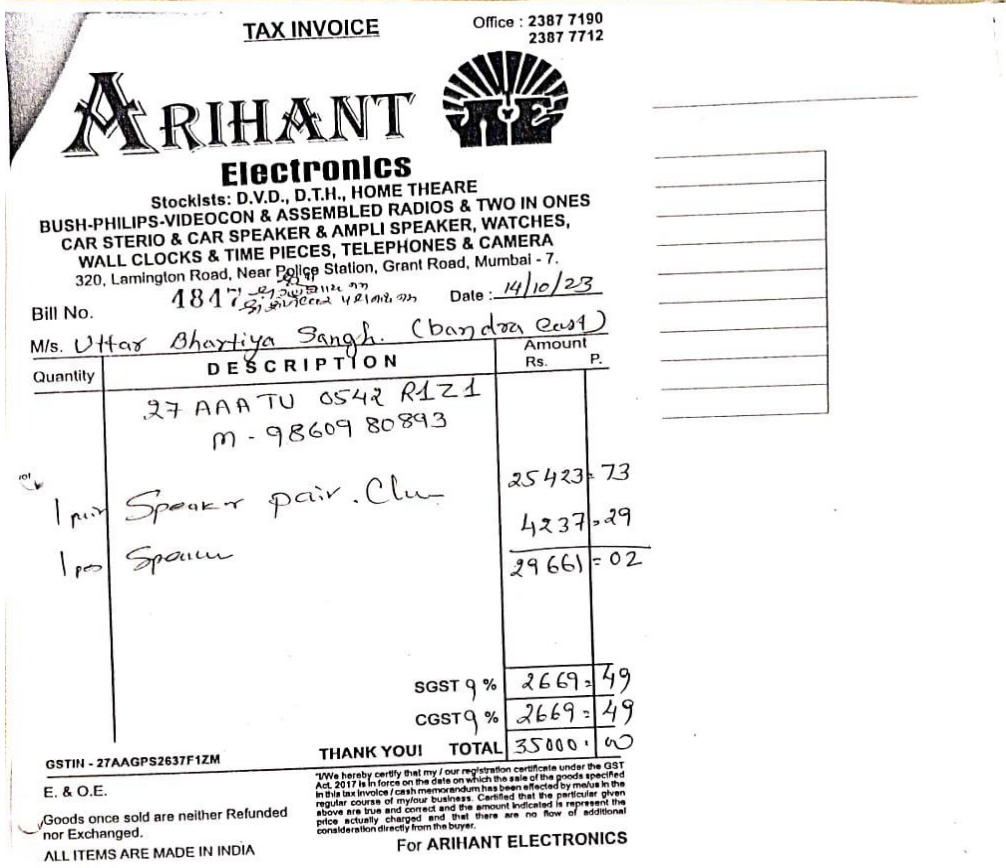 TAX INVOICE
Office : 2387 7190
2387 7712
ARIHANT
Electronics
Stockists: D.V.D., D.T.H., HOME THEARE
BUSH-PHILIPS-VIDEOCON & ASSEMBLED RADIOS & TWO IN ONES
CAR STERIO & CAR SPEAKER & AMPLI SPEAKER, WATCHES,
WALL CLOCKS & TIME PIECES, TELEPHONES & CAMERA
320, Lamington Road, Near Police Station, Grant Road, Mumbai - 7.
Bill No. 1817 Date : 14/10/23
M/s. Uttar Bhartiya Sangh. (bandra east)
Quantity DESCRIPTION Amount
Rs. P.
27 AAA TU 0542 R1Z1
M - 98609 80893
1 pair Speaker pair. 25423=73
1 pes 4237=29
29661=02
SGST 9 % 2669=49
CGST 9 % 2669=49
THANK YOU! TOTAL 35000.00
GSTIN - 27AAGPS2637F1ZM
E. & O.E.
Goods once sold are neither Refunded
nor Exchanged.
ALL ITEMS ARE MADE IN INDIA
"I/We hereby certify that my / our registration certificate under the GST
Act. 2017 is in force on the date on which the sale of the goods specified
in this tax invoice / cash memorandum has been effected by me/us in the
regular course of my/our business. Certified that the particular given
above are true and correct and the amount indicated is represent the
price actually charged and that there are no flow of additional
consideration directly from the buyer.
For ARIHANT ELECTRONICS